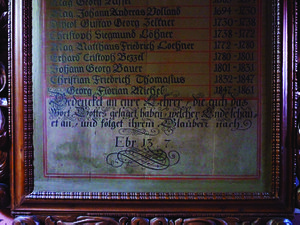 Mag. Georg
Mag. Johann Andreas Volland 1694 - 1730
Mag. Gustav Georg Zeltner 1730 - 1738
Christoph Sigmund Löhner 1738 - 1771
Mag. Matthäus Friedrich Lochner 1772 - 1780
Gerhard Christoph Bezzel 1788 - 1801
Johann Georg Bauer 1801 - 1831
Christian Friedrich Thomasius 1832 - 1847
Georg Florian Michel 1847 - 1863
Gedencket an eure Lehrer, die euch das
Wort Gottes gesaget haben, welcher Ende schau-
et an, und folget ihrem Glauben nach.
Ebr 13 7